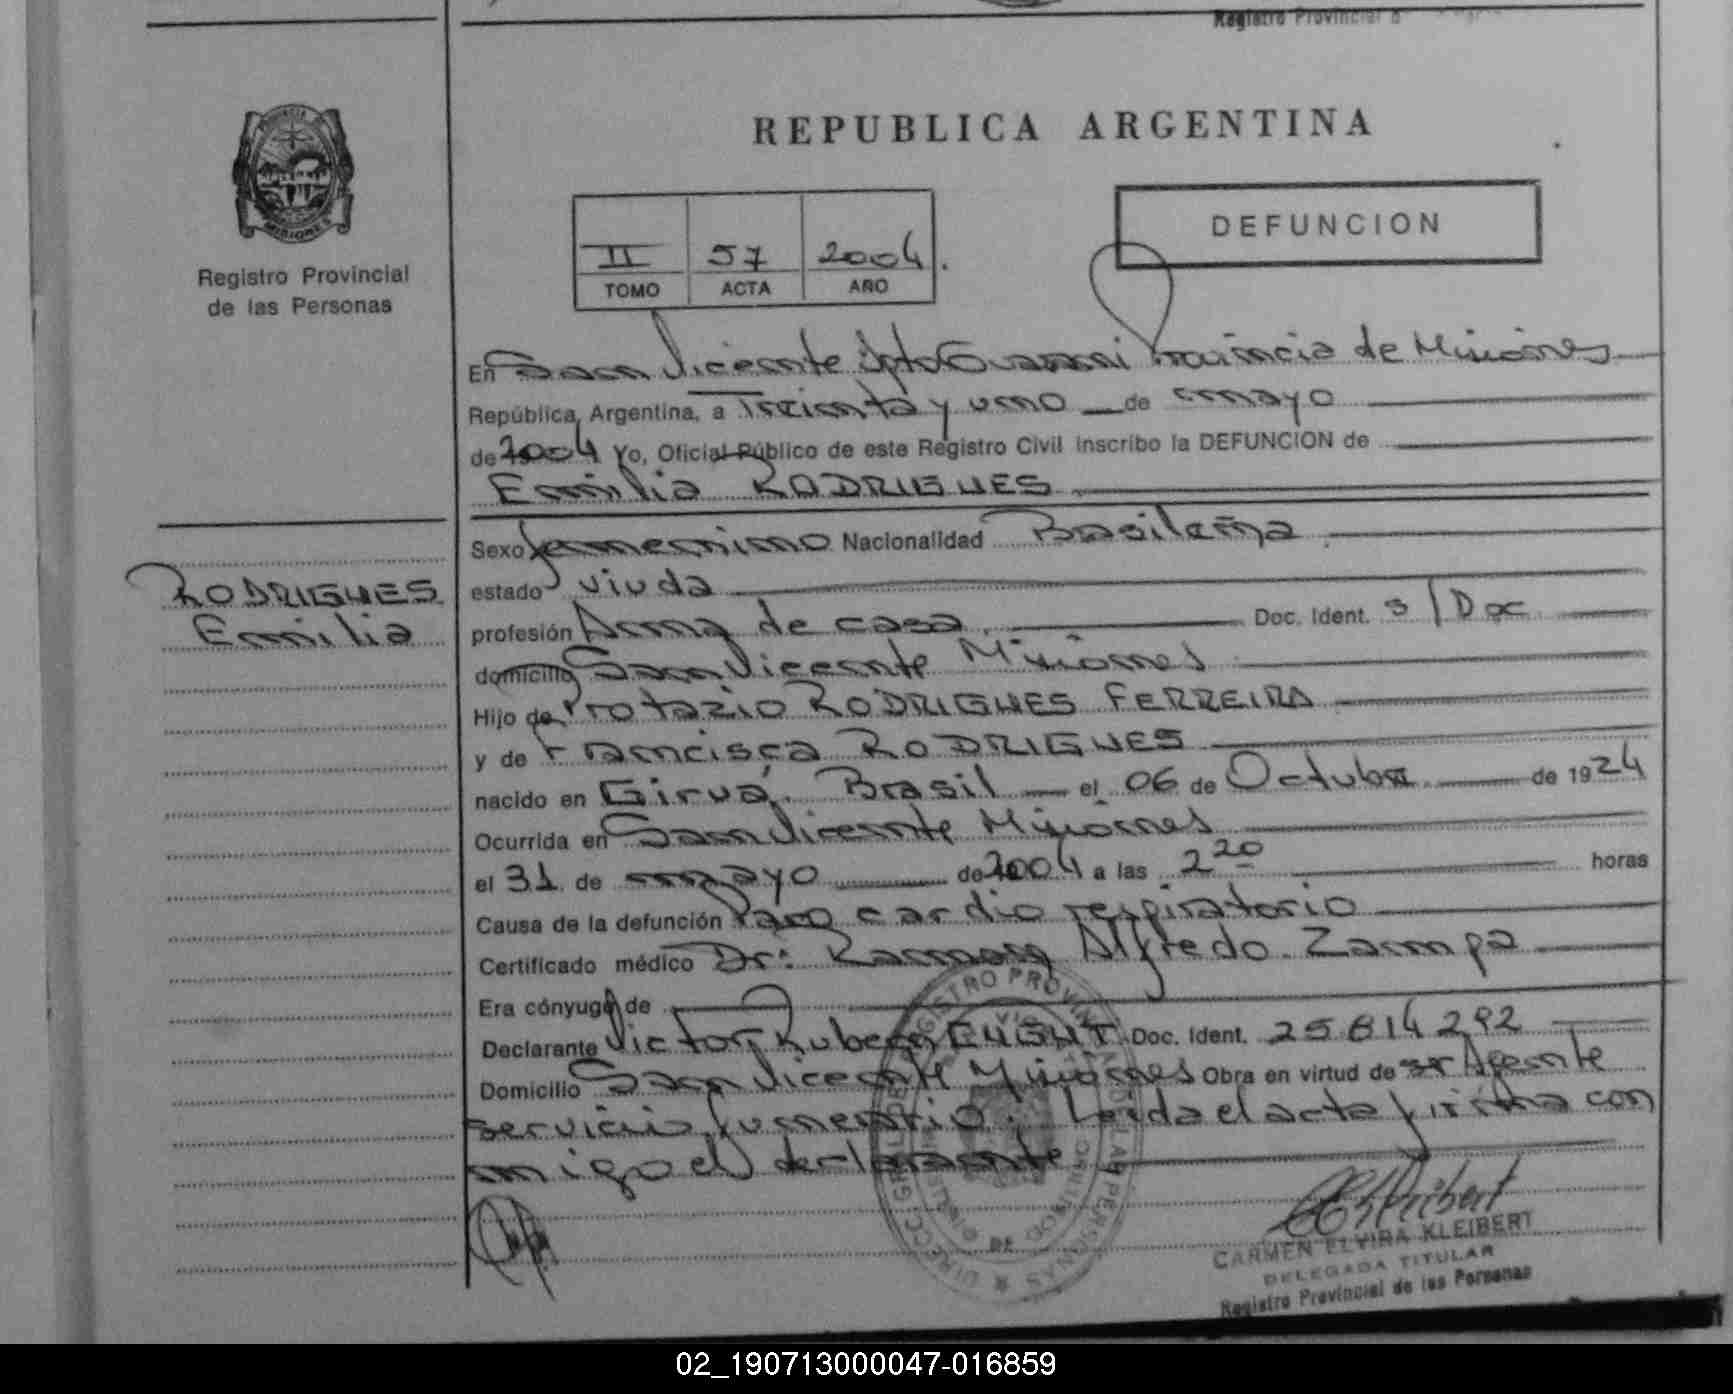 Registro Provincial d
REPUBLICA ARGENTINA
DEFUNCION
II 57 2004.
TOMO ACTA AÑO
PROVINCIA
MISIONES
Registro Provincial
de las Personas
En San Vicente Dpto Guaraní Provincia de Misiones
República Argentina, a Treinta y uno de mayo
de 2004 Yo, Oficial Público de este Registro Civil inscribo la DEFUNCION de
Emilia RODRIGUES
Sexo femenino Nacionalidad Brasileña
RODRIGUES
Emilia
estado viuda
profesión Ama de casa Doc. Ident. s/Doc
domicilio San Vicente Misiones
Hijo de Protazio RODRIGUES FERREIRA
y de Francisca RODRIGUES
nacido en Giruá, Brasil el 06 de Octubre de 1924
Ocurrida en San Vicente Misiones
el 31 de mayo de 2004 a las 2 20 horas
Causa de la defunción Paro cardio respiratorio
Certificado médico Dr: Ramon Alfredo Zampa
Era cónyuge de
Declarante Victor Ruben Doc. Ident. 25814292
Domicilio San Vicente Misiones Obra en virtud de ser Agente
servicio funerario. Leida el acta firma con
migo el declarante
REGISTRO PROVINCIAL DE LAS PERSONAS
CARMEN ELVIRA KLEIBERT
DELEGADA TITULAR
Registro Provincial de las Personas
02_190713000047-016859